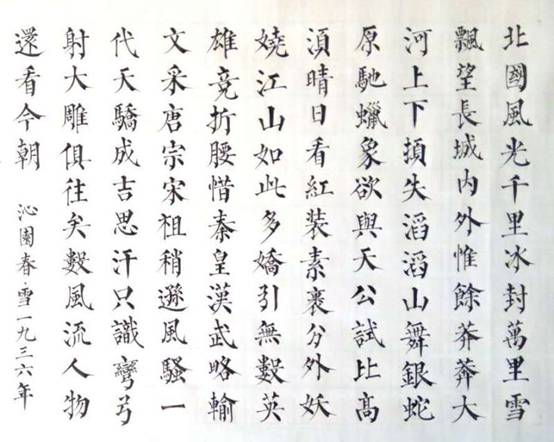 北國風光千里冰封萬里雪
飄望長城內外惟餘莽莽大
河上下頓失滔滔山舞銀蛇
原馳蠟象欲與天公試比髙
湏晴日看紅裝素裹分外妖
嬈江山如此多嬌引無數英
雄竞折腰惜秦皇漢武略輸
文采唐宗宋祖稍遜風騷一
代天驕成吉思汗只識彎弓
射大雕俱往矣數風流人物
還看今朝 沁園春·雪一九三六年